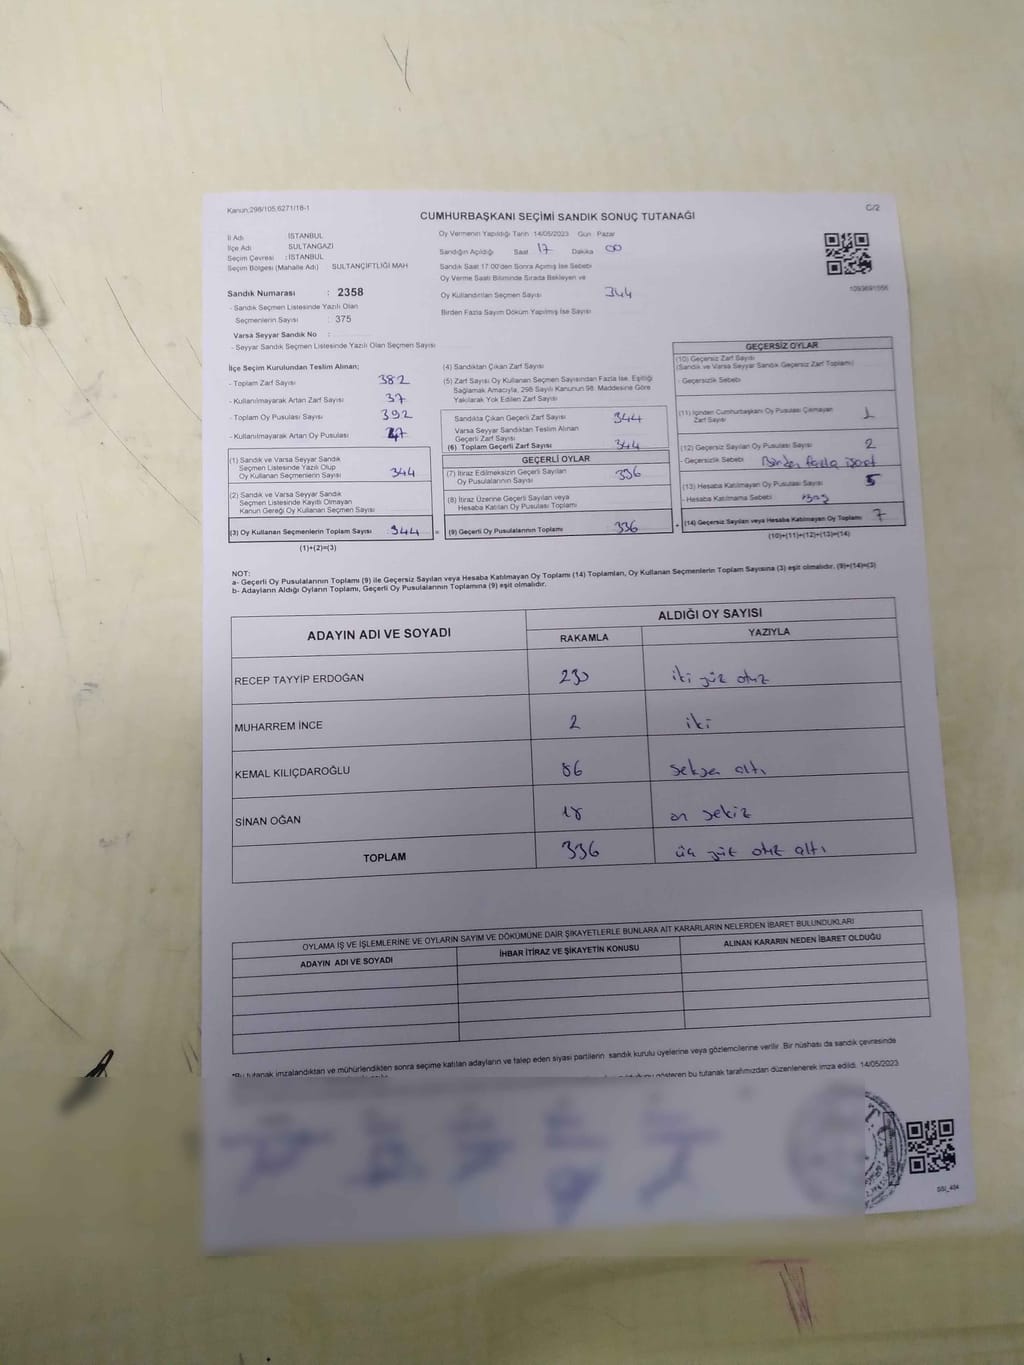 Kanun:298/105,6271/18-1
C/2
CUMHURBAŞKANI SEÇİMİ SANDIK SONUÇ TUTANAĞI
İl Adı : İSTANBUL
İlçe Adı SULTANGAZİ
Seçim Çevresi : İSTANBUL
Seçim Bölgesi (Mahalle Adı) SULTANÇİFTLİĞİ MAH
Sandık Numarası : 2358
- Sandık Seçmen Listesinde Yazılı Olan
Seçmenlerin Sayısı : 375
Varsa Seyyar Sandık No :
- Seyyar Sandık Seçmen Listesinde Yazılı Olan Seçmen Sayısı
Oy Vermenin Yapıldığı Tarih 14/05/2023 Gün Pazar
Sandığın Açıldığı Saat 17 Dakika 00
Sandık Saat 17 00'den Sonra Açılmış İse Sebebi
Oy Verme Saati Bitiminde Sırada Bekleyen ve
Oy Kullandırılan Seçmen Sayısı 344
Birden Fazla Sayım Döküm Yapılmış İse Sayısı
İlçe Seçim Kurulundan Teslim Alınan;
- Toplam Zarf Sayısı 382
- Kullanılmayarak Artan Zarf Sayısı 37
- Toplam Oy Pusulası Sayısı 392
- Kullanılmayarak Artan Oy Pusulası
(1) Sandık ve Varsa Seyyar Sandık
Seçmen Listesinde Yazılı Olup
Oy Kullanan Seçmenlerin Sayısı 344
(2) Sandık ve Varsa Seyyar Sandık
Seçmen Listesinde Kayıtlı Olmayan
Kanun Gereği Oy Kullanan Seçmen Sayısı
(3) Oy Kullanan Seçmenlerin Toplam Sayısı 344 =
(1)+(2)=(3)
(4) Sandıktan Çıkan Zarf Sayısı
(5) Zarf Sayısı Oy Kullanan Seçmen Sayısından Fazla İse, Eşitliği
Sağlamak Amacıyla, 298 Sayılı Kanunun 98. Maddesine Göre
Yakılarak Yok Edilen Zarf Sayısı
Sandıkta Çıkan Geçerli Zarf Sayısı 344
Varsa Seyyar Sandıktan Teslim Alınan
Geçerli Zarf Sayısı
(6) Toplam Geçerli Zarf Sayısı 344
GEÇERLİ OYLAR
(7) İtiraz Edilmeksizin Geçerli Sayılan
Oy Pusulasının Sayısı 336
(8) İtiraz Üzerine Geçerli Sayılan veya
Hesaba Katılan Oy Pusulası Toplamı
(9) Geçerli Oy Pusulalarının Toplamı 336 +
GEÇERSİZ OYLAR
(10) Geçersiz Zarf Sayısı
(Sandık ve Varsa Seyyar Sandık Geçersiz Zarf Toplamı)
- Geçersizlik Sebebi
(11) İçinden Cumhurbaşkanı Oy Pusulası Çıkmayan
Zarf Sayısı 1
(12) Geçersiz Sayılan Oy Pusulası Sayısı 2
- Geçersizlik Sebebi Birden fazla işaret
(13) Hesaba Katılmayan Oy Pusulası Sayısı 5
- Hesaba Katılmama Sebebi
(14) Geçersiz Sayılan veya Hesaba Katılmayan Oy Toplamı 7
(10)+(11)+(12)+(13)=(14)
NOT:
a- Geçerli Oy Pusulalarının Toplamı (9) ile Geçersiz Sayılan veya Hesaba Katılmayan Oy Toplamı (14) Toplamları, Oy Kullanan Seçmenlerin Toplam Sayısına (3) eşit olmalıdır. (9)+(14)=(3)
b- Adayların Aldığı Oyların Toplamı, Geçerli Oy Pusulalarının Toplamına (9) eşit olmalıdır.
ADAYIN ADI VE SOYADI
ALDIĞI OY SAYISI
RAKAMLA YAZIYLA
RECEP TAYYİP ERDOĞAN 230 iki yüz otuz
MUHARREM İNCE 2 iki
KEMAL KILIÇDAROĞLU 86 seksen altı
SİNAN OĞAN 18 on sekiz
TOPLAM 336 üç yüz otuz altı
OYLAMA İŞ VE İŞLEMLERİNE VE OYLARIN SAYIM VE DÖKÜMÜNE DAİR ŞİKAYETLERLE BUNLARA AİT KARARLARIN NELERDEN İBARET BULUNDUKLARI
ADAYIN ADI VE SOYADI İHBAR İTİRAZ VE ŞİKAYETİN KONUSU ALINAN KARARIN NEDEN İBARET OLDUĞU
*Bu tutanak imzalandıktan ve mühürlendikten sonra seçime katılan adayların ve talep eden siyasi partilerin sandık kurulu üyelerine veya gözlemcilerine verilir. Bir nüshası da sandık çevresinde
gösteren bu tutanak tarafımızdan düzenlenerek imza edildi. 14/05/2023